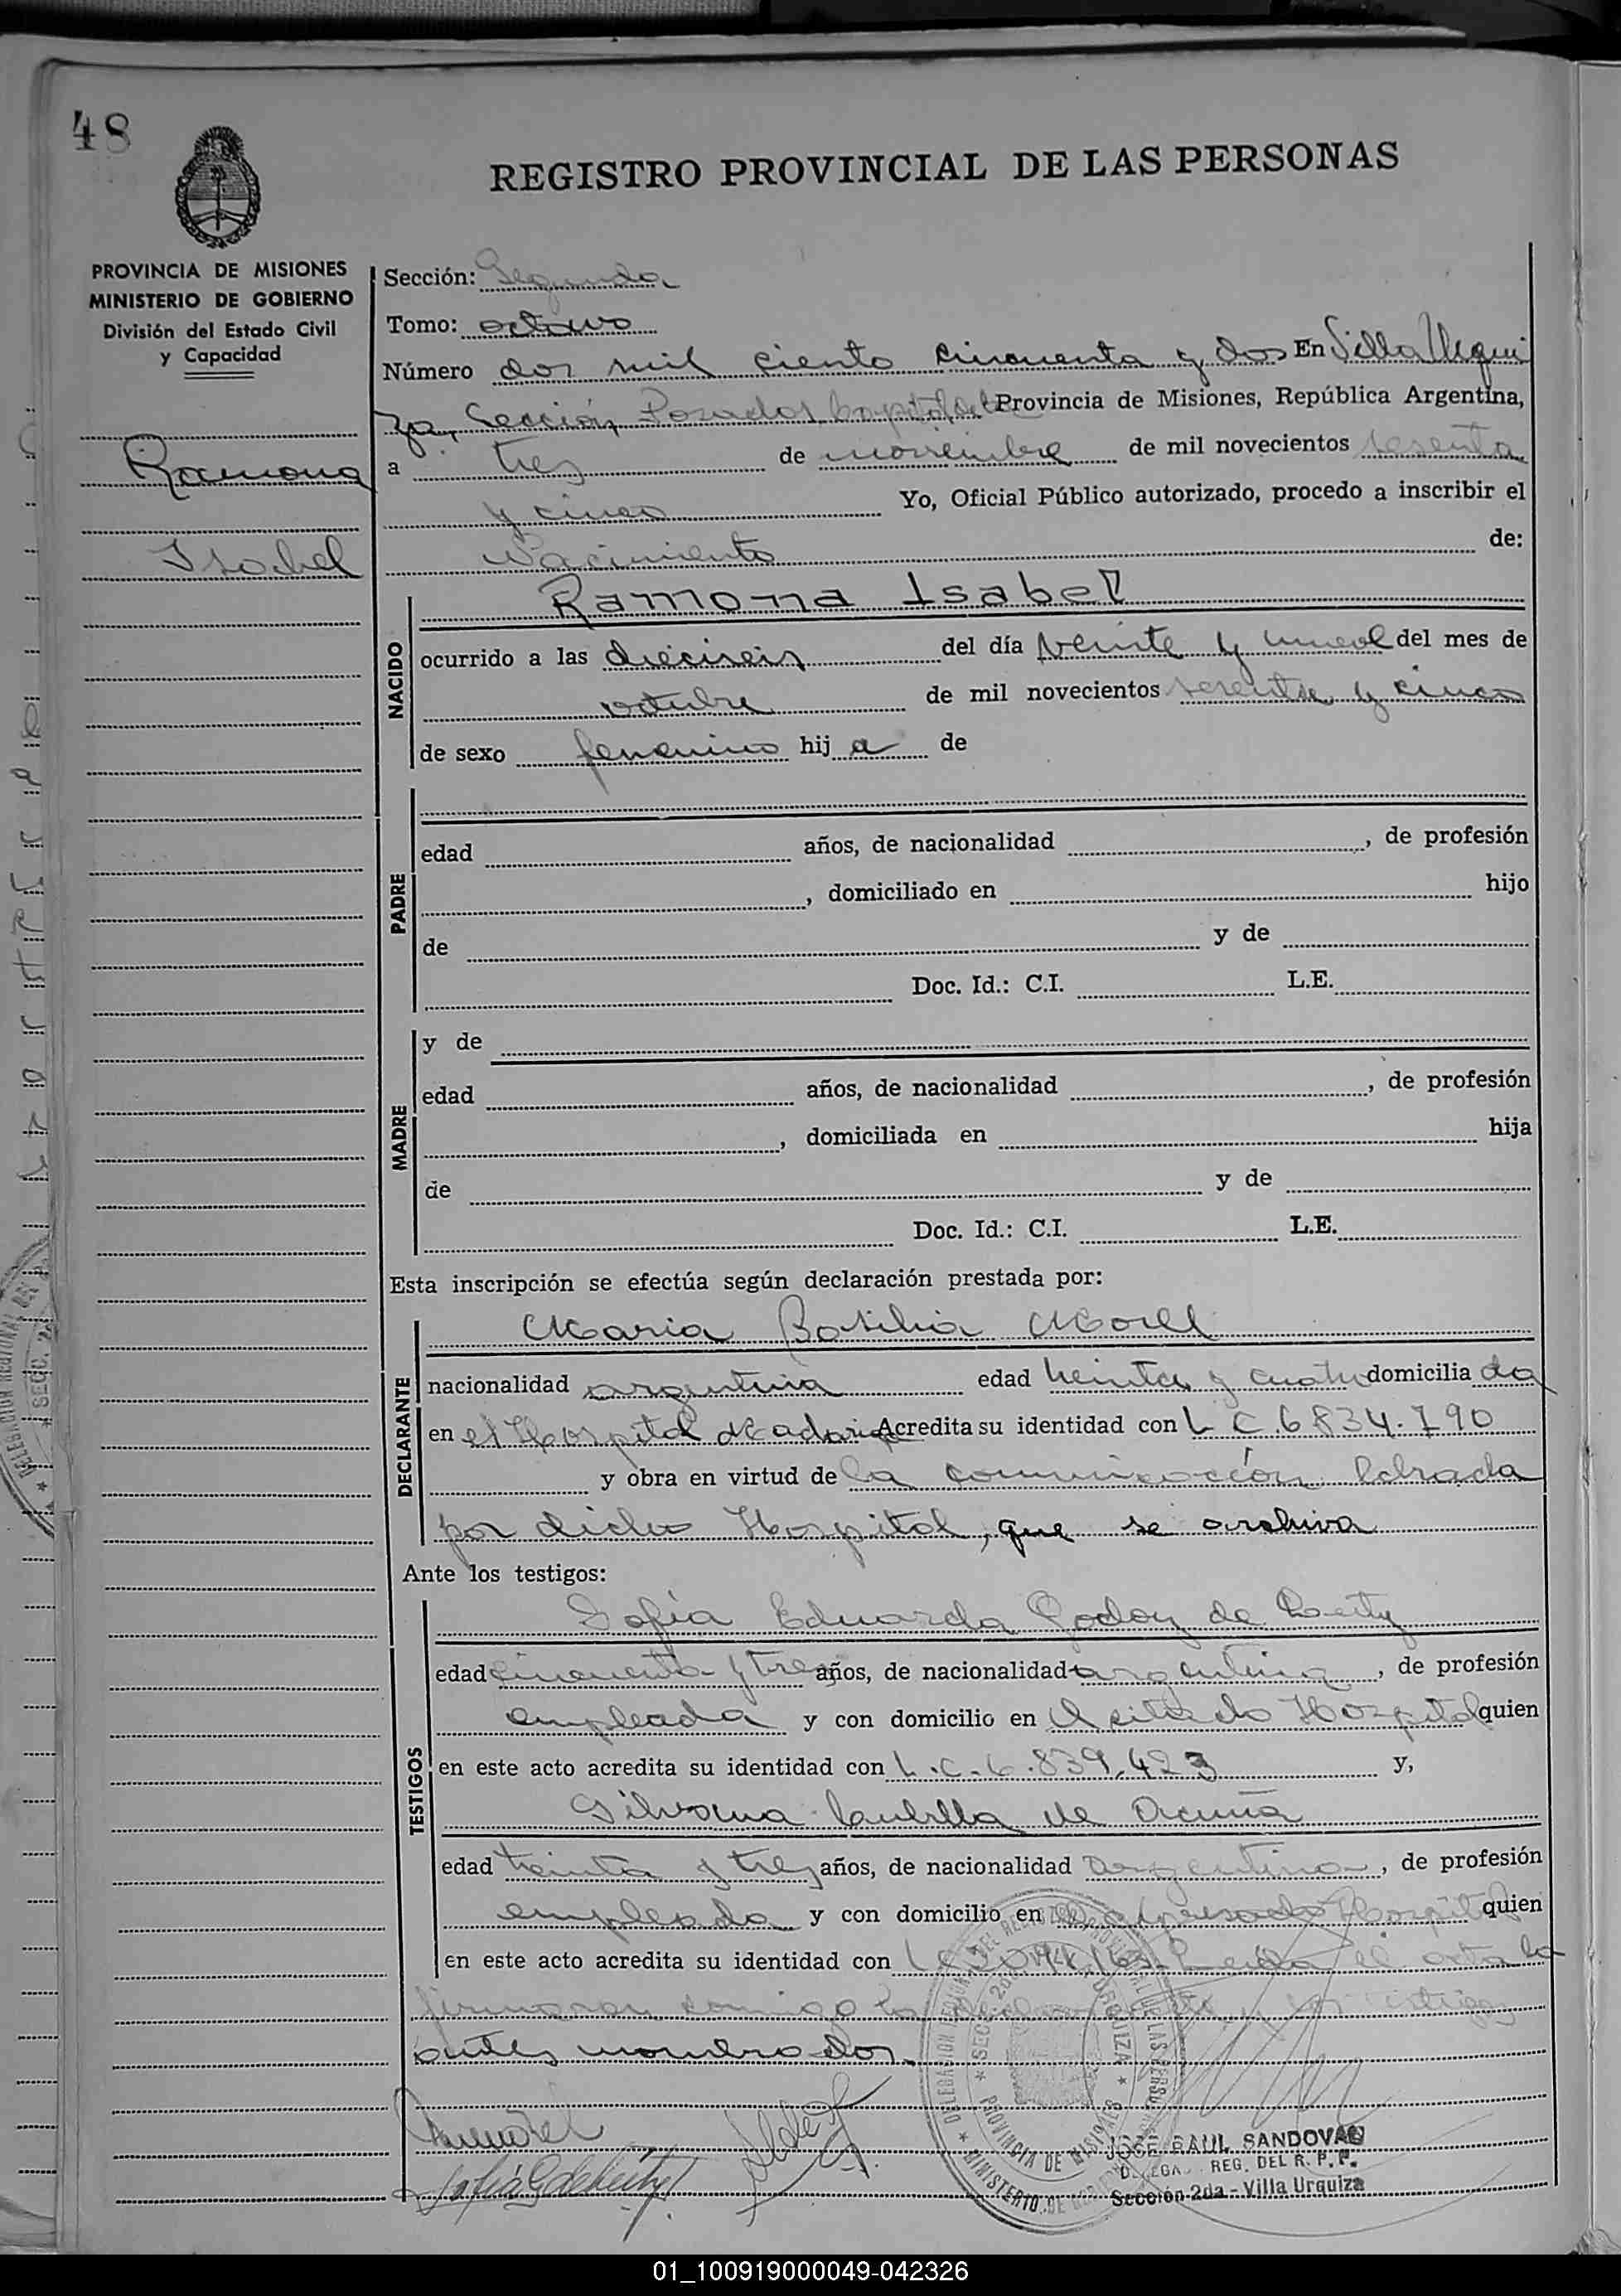 48
REGISTRO PROVINCIAL DE LAS PERSONAS
PROVINCIA DE MISIONES
MINISTERIO DE GOBIERNO
División del Estado Civil
y Capacidad
Ramona
Isabel
Sección: Segunda
Tomo: octavo
Número dos mil ciento cincuenta y dos En Villa Urqui
za, Sección Posadas Capital Provincia de Misiones, República Argentina,
a tres de noviembre de mil novecientos sesenta
y cinco Yo, Oficial Público autorizado, procedo a inscribir el
Nacimiento de:
NACIDO
Ramona Isabel
ocurrido a las dieciseis del día veinte y nueve del mes de
octubre de mil novecientos sesenta y cinco
de sexo femenino hij a de
PADRE
edad años, de nacionalidad , de profesión
, domiciliado en hijo
de y de
Doc. Id.: C.I. L.E.
MADRE
y de
edad años, de nacionalidad , de profesión
, domiciliada en hija
de y de
Doc. Id.: C.I. L.E.
Esta inscripción se efectúa según declaración prestada por:
DECLARANTE
Maria Basilia Morel
nacionalidad argentina edad treinta y cuatro domicilia da
en el Hospital Madariaga Acredita su identidad con L C. 6834.790
y obra en virtud de la comunicación labrada
por dicho Hospital, que se archiva
Ante los testigos:
TESTIGOS
Sofia Eduarda Godoy de
edad cincuenta y tres años, de nacionalidad argentina, de profesión
empleada y con domicilio en el citado Hospital quien
en este acto acredita su identidad con L.C. 6.839.423 y,
Silvana de Acuña
edad treinta y tres años, de nacionalidad argentina, de profesión
empleada y con domicilio en el expresado Hospital quien
en este acto acredita su identidad con Leida el acta la
firmaron conmigo la declarante y los testigos
antes nombrados.
DELEGACION REGIONAL DEL REGISTRO PROVINCIAL DE LAS PERSONAS
SECC. 2da URQUIZA
PROVINCIA DE MISIONES
MINISTERIO DE
JOSE RAUL SANDOVAL
DELEGA. REG. DEL R. P. P.
Sección 2da - Villa Urquiza
01_100919000049-042326